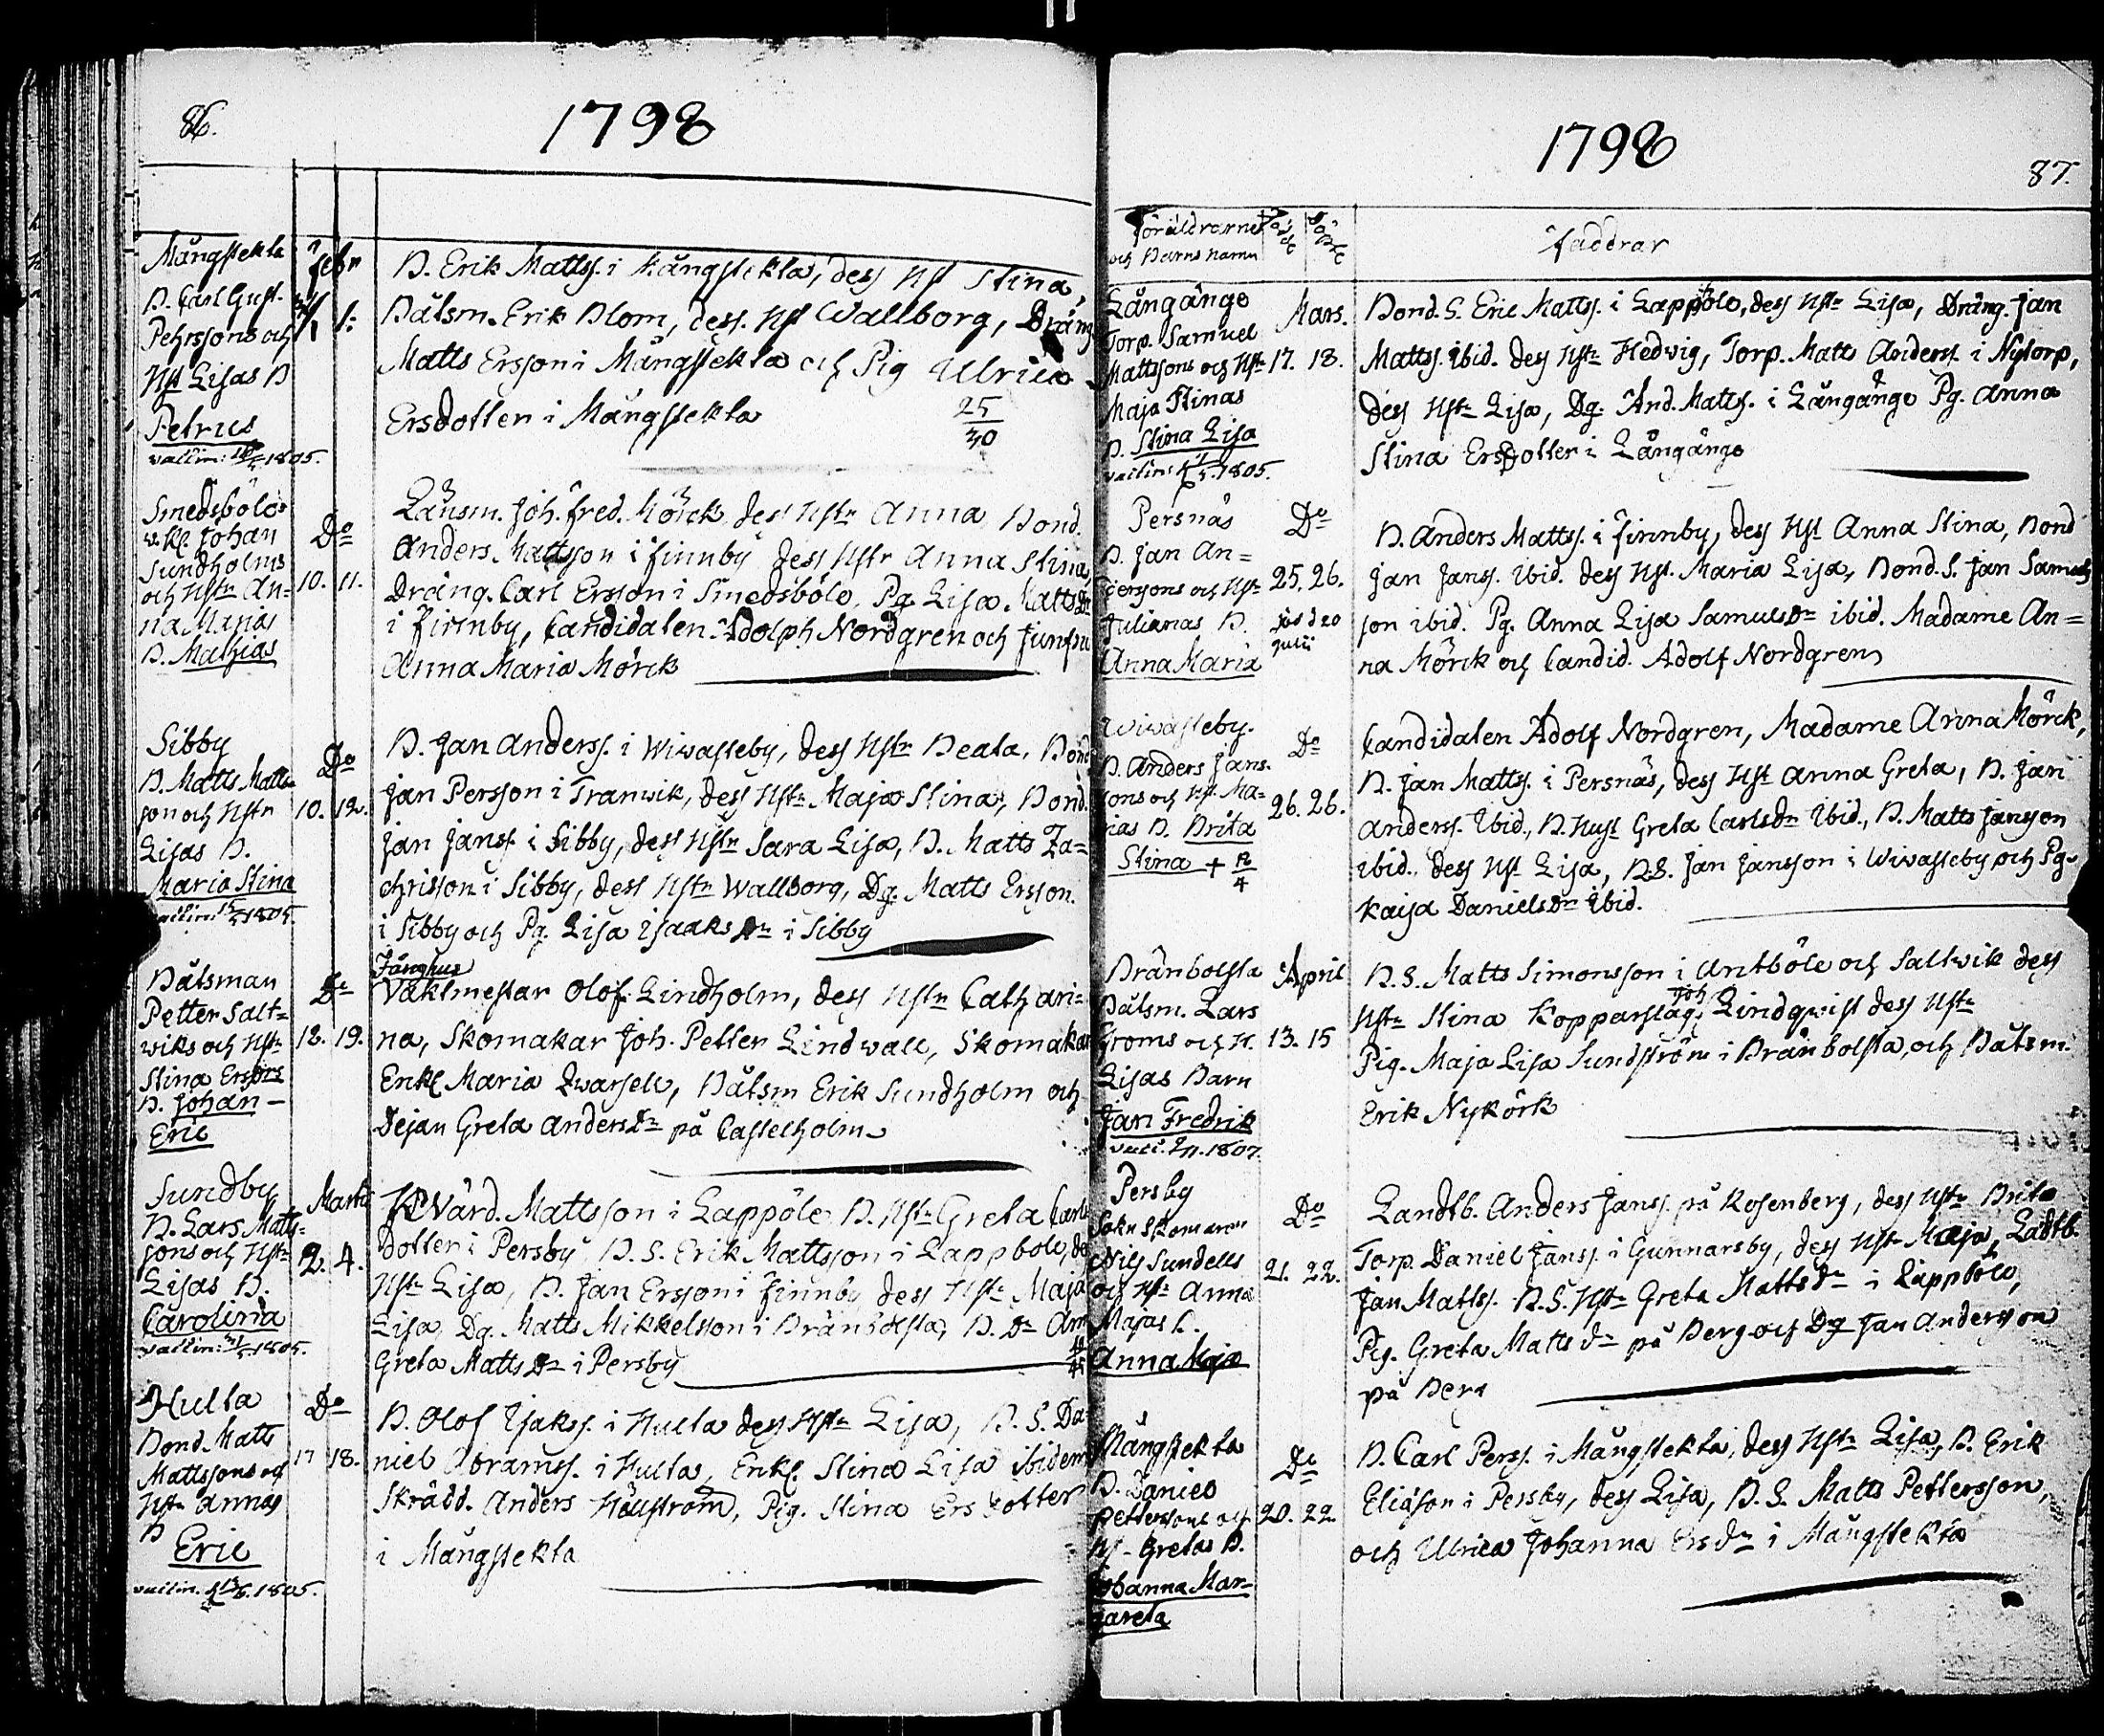 86.
1798
Mångstekta
Febr
B. Carl Gust.
Pehrssons och
Hst Lisas B
Petrus
vaccin: 1805.
31/1 1.
B. Erik Mattss. i Mångstekta, dess Hst Stina,
Båtsm. Erik Blom, dess Hst Wallborg, Dräng
Matts Ersson i Mångstekta och Pig Ulrica
Ersdotter i Mångstekta
25
30
Smedsböle
Johan
Sundholms
och Hstr An=
na Marias
B. Mathias
Do
10. 11.
Länsm. Joh. Fred. Mörck dess Hstr Anna Bond.
Anders Mattsson i Finnby dess Hstr Anna Stina,
Dräng. Carl Ersson i Smedsböle, Pg Lisa Matts Dr
i Finnby, Candidaten Adolph Nordgren och Jungfru
Anna Maria Mörck
Sibby
B. Matts Matts=
son och Hstr
Lisas B.
Maria Stina
vaccin: 1805.
Do
10. 12.
B. Jan Anderss. i Wiwasteby, dess Hstr Beata, Bond
Jan Persson i Tranwik, dess Hstr Maja Stina, Bond.
Jan Janss. i Sibby, dess Hstr Sara Lisa, B. Matts Za=
chrisson i Sibby, dess Hstr Wallborg, Dg. Matts Ersson.
i Sibby och Pg. Lisa Isaaks Dr i Sibby
Båtsman
Petter Salt=
wiks och Hstr
Stina Ersdrs
B. Johan-
Eric
Do
12. 19.
Fånghus
Vaktmestar Olof Lindholm, dess Hstr Cathari=
na, Skomakar Joh. Petter Lindwall, Skomakar
Enkl Maria Zwarfell, Båtsm Erik Sundholm och
Dejan Greta Anders Dr på Castelholm
Sundby
B. Lars Matts=
sons och Hstr
Lisas B.
Carolina
vaccin: 1805.
Marti
2. 4.
Kvärd. Mattsson i Lappöle B. Hstr Greta Carls
dotter i Persby, B. S. Erik Mattsson i Lappböle, des
Hstr Lisa, B. Jan Ersson i Finnby dess Hstr Maja
Lisa, Dg. Matts Mikkelsson i Bränbolsta, B. Dr Ann
Greta Matts Dr i Persby
Hulta
Bond. Matts
Mattssons och
Hstr Annas
B
Eric
vaccin. 1805.
Do
17 18.
B. Olof Isakss. i Hulta dess Hstr Lisa, B. S. Da=
niel Abramss. i Hulta, Enkl. Stina Lisa ibidem
Skrädd. Anders Hällström, Pig. Stina Ers dotter
i Mångstekta
1798
87.
Föräldrarne
och Barns namn
Född
Döpt
Faddrar
Långänge
Torp. Samuel
Mattssons och Hstr
Maja Stinas
B. Stina Lisa
vaccin: 1805.
Mars.
17. 18.
Bond. S. Eric Mattss. i Lappböle, dess Hstr Lisa, Dräng. Jan
Mattss. ibid. dess Hstr Hedwig, Torp. Matts Anderss. i Nytorp,
dess Hstr Lisa, Dg. And. Matts. i Långänge Pg. Anna
Stina Ersdotter i Långänge
Persnäs
B. Jan An=
derssons och Hstr
Julianas B.
Anna Maria
Do
25. 26.
död 20
Julii
B. Anders Mattss. i Finnby, dess Hst Anna Stina, Bond
Jan Janss. ibid. dess Hst. Maria Lisa, Bond. S. Jan Samuels
son ibid. Pg. Anna Lisa Samuels Dr ibid. Madame An=
na Mörck och Candid. Adolf Nordgren
Wiwasteby.
B. Anders Jans=
sons och Hst. Ma=
rias B. Brita
Stina + 12/4
Do
26. 26.
Candidaten Adolf Nordgren, Madame Anna Mörck,
B. Jan Mattss. i Persnäs, dess Hst Anna Greta, B. Jan
Anderss. ibid., B. Hust Greta Carlsdr ibid., B. Matts Jansson
ibid. dess Hst Lisa, B.S. Jan Jansson i Wiwasteby och Pg.
Kaisa Danielsdr ibid.
Bränbolsta
Båtsm. Lars
Groms och H.
Lisas Barn
Jan Fredrik
vacc. 1807.
April
13. 15
B. S. Matts Simonsson i Antböle och Saltwik dess
Hstr Stina Kopparslag. Joh. Lindqwist dess Hstr
Pig. Maja Lisa Sundström i Bränbolsta, och Båtsm.
Erik Nykörk
Persby
Sokn Skomaren
Nils Sundells
och Hstr Anna
Majas B.
Anna Maja
Do
21. 22.
Landtb. Anders Janss. på Rosenberg, dess Hstr Brita
Torp. Daniel Janss. i Gunnarsby, dess Hstr Maja, Ladtb.
Jan Mattss. B. S. Hstr Greta Mattsdr i Lappböle,
Pig. Greta Matts dr på Berg och Dg Jan Andersson
på Berg
Mångstekta
B. Daniel
Petterssons och
Hs- Greta B.
Johanna Mar=
gareta
Do
20. 22.
B. Carl Perss. i Mångstekta, dess Hstr Lisa, B. Erik
Eliasson i Persby, dess Lisa, B. S. Matts Pettersson,
och Ulrica Johanna Ersdr i Mångstekta